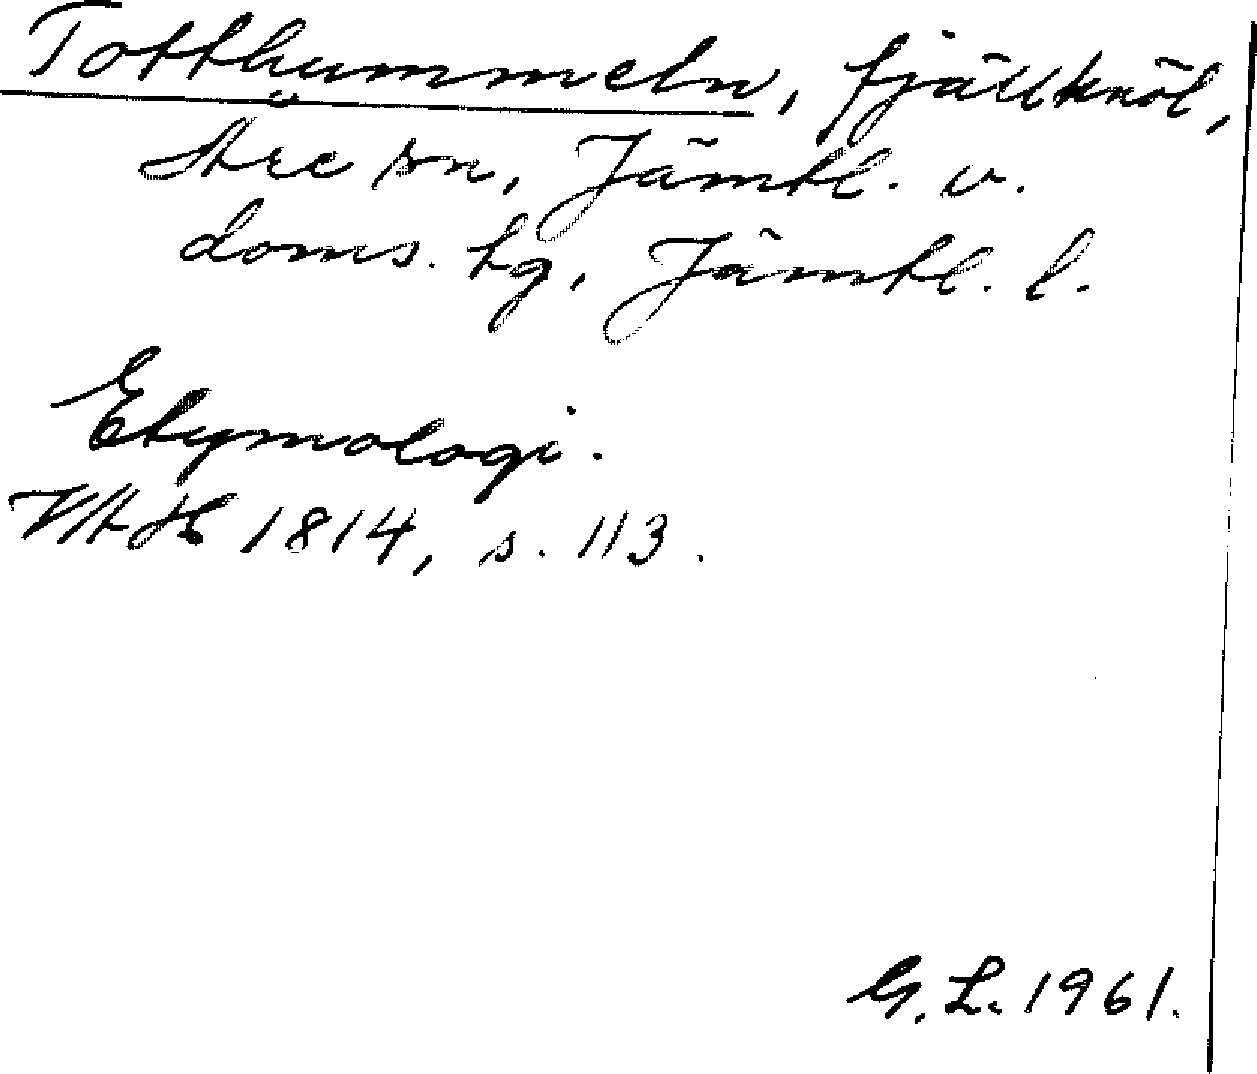 Totthummeln, fjällknöl,
Åre sn, Jämtl. v.
doms. hg, Jämtl. l.
Etymologi.
VAH 1814, s. 113.
G. L. 1961.